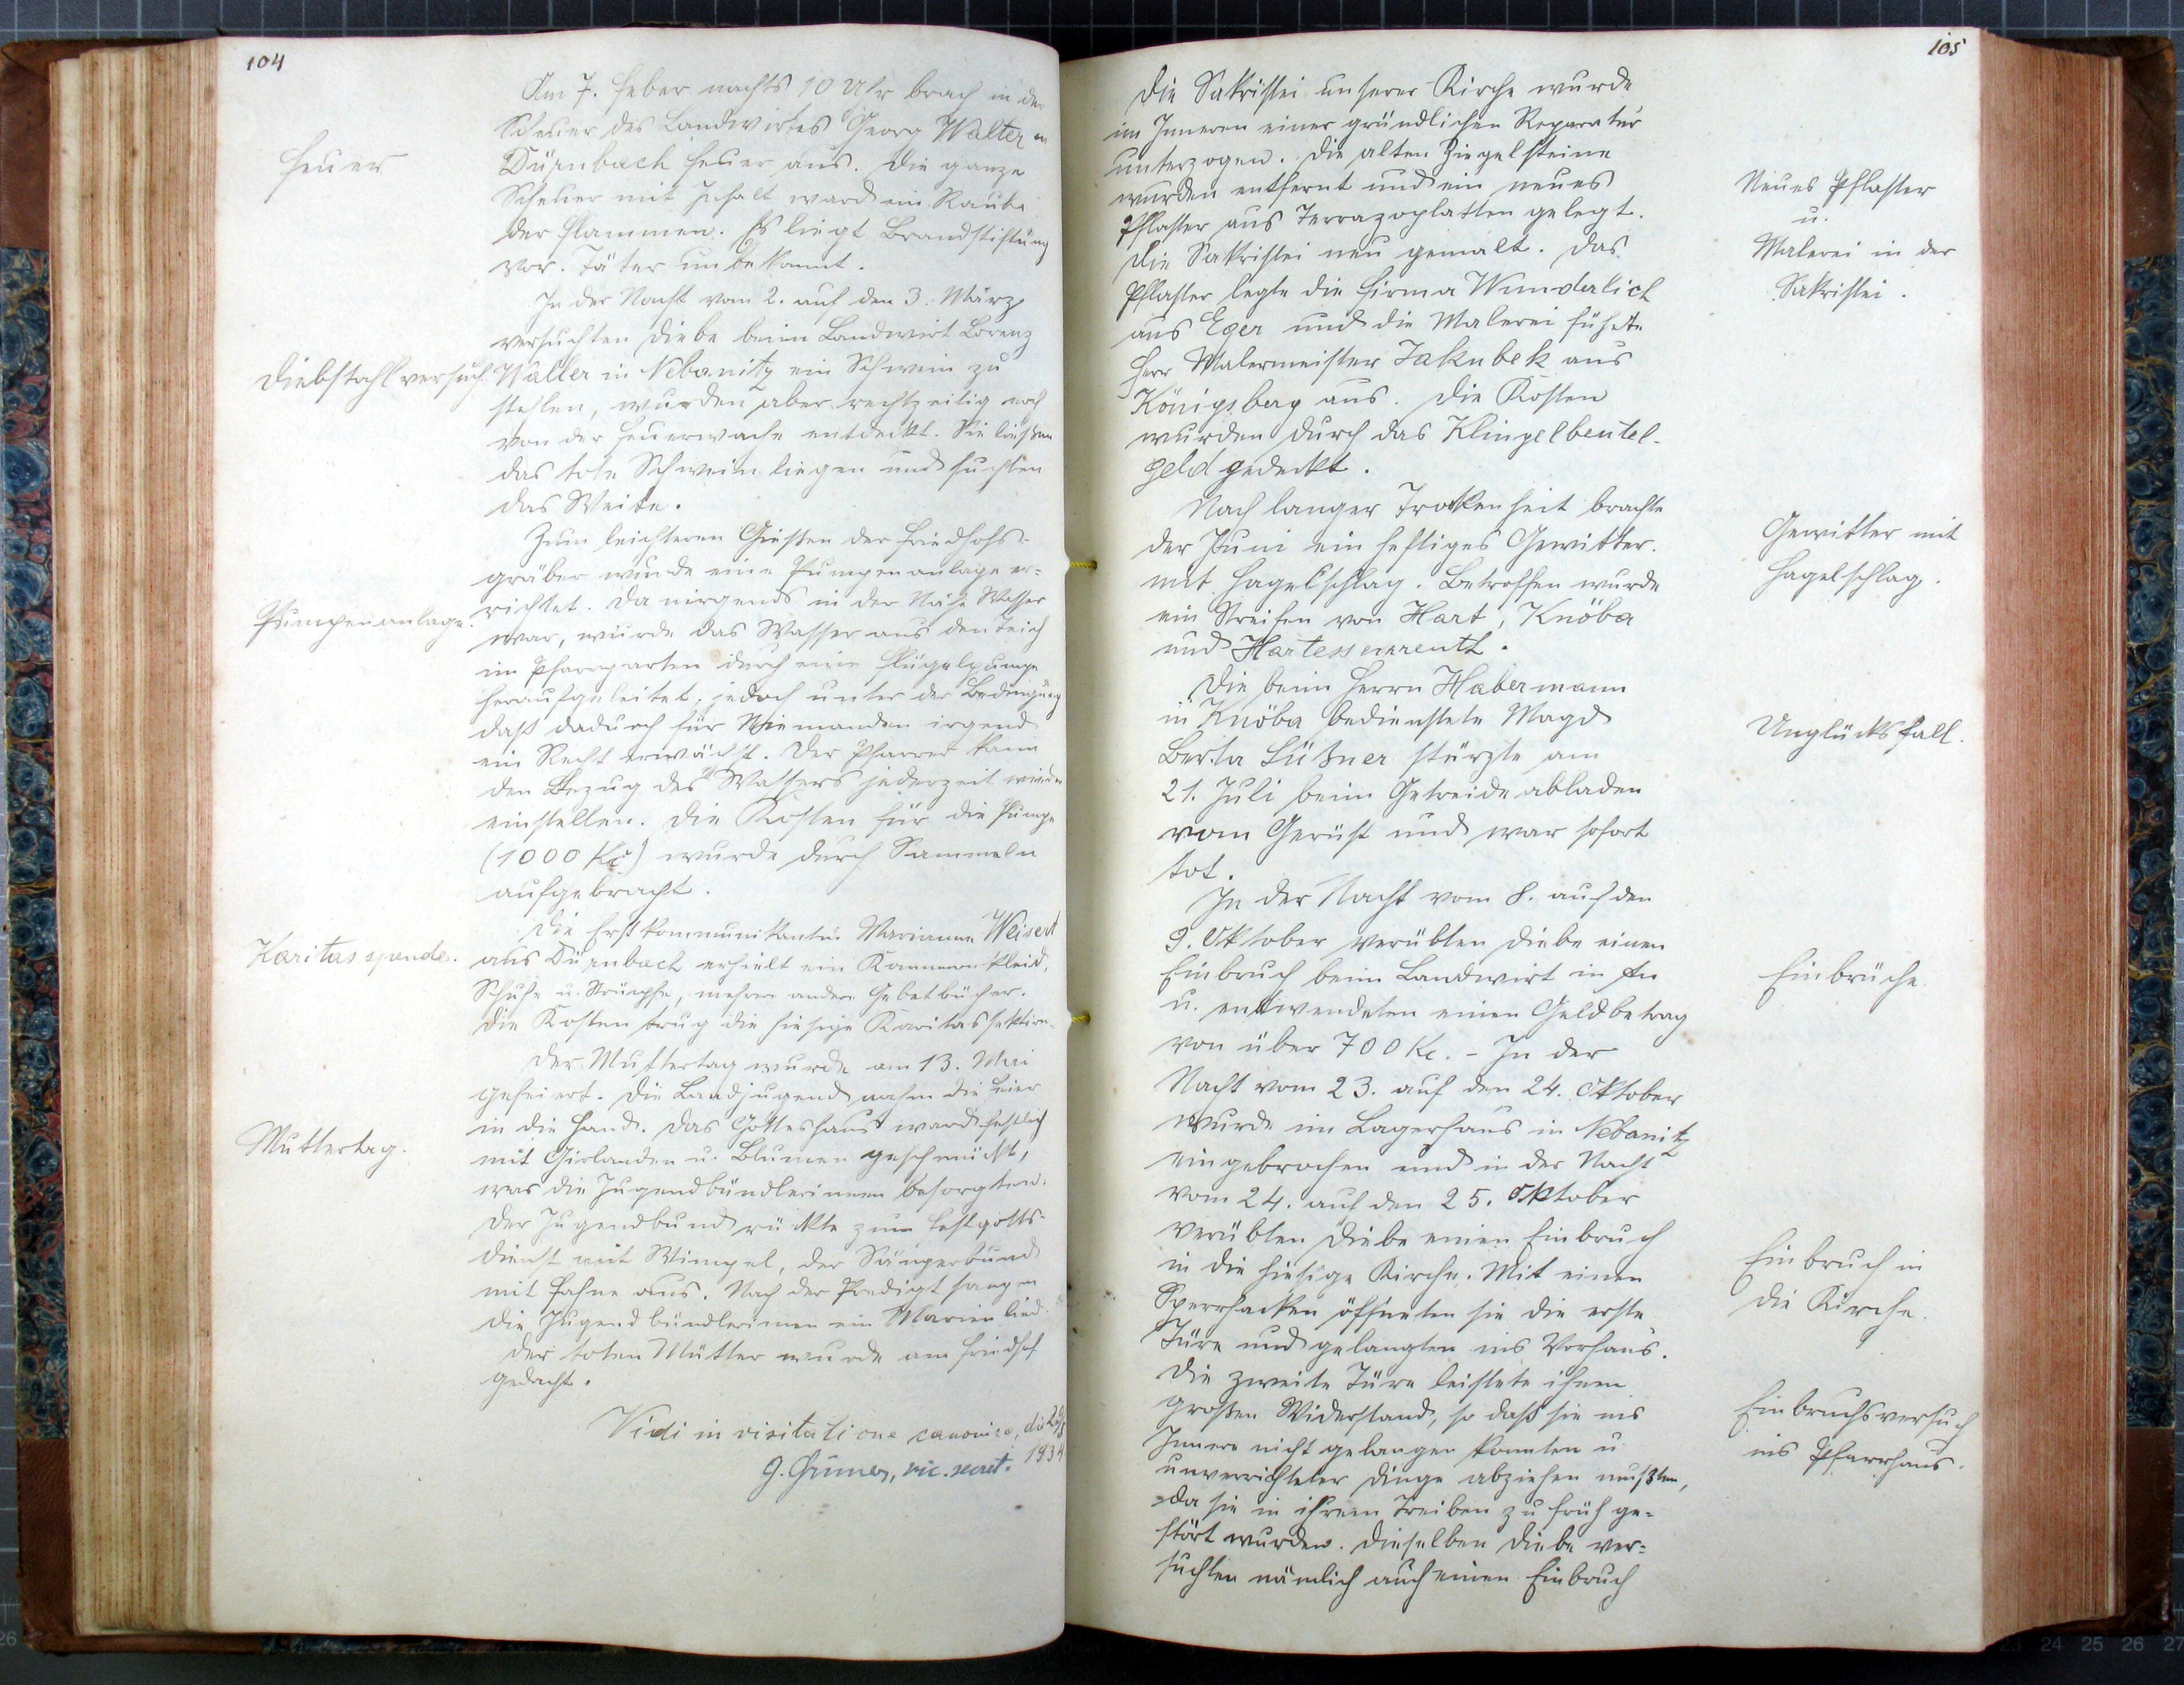 104
Am 7. Feber nachts 10 Uhr brach in der
Scheuer des Landwirtes Georg Walter in
Feuer
Dürnbach Feuer aus. Die ganze
Scheuer mit Inhalt ward ein Raub
der Flammen. Es liegt Brandstiftung
vor. Täter unbekannt.
In der Nacht vom 2. auf den 3. März
versuchten Diebe beim Landwirt Lorenz
Diebstahlversuch.
Waller in Nebanitz ein Schwein zu
stehlen, wurden aber rechtzeitig noch
von der Feuerwache entdeckt. Sie ließen
das tote Schwein liegen und suchten
das Weite.
Zum leichteren Gießen der Friedhofs-
gräber wurde eine Pumpenanlage er=
Pumpenanlage.
richtet. Da nirgends in der Nähe Wasser
war, wurde das Wasser aus den Teich
im Pfarrgarten durch eine Flügelpumpe
heraufgeleitet, jedoch unter der Bedingung
daß dadurch für Niemanden irgend
ein Recht erwächst. Der Pfarrer kann
den Bezug des Wassers jederzeit wieder
einstellen. Die Kosten für die Pumpe
(1000 Kč) wurde durch Sammeln
aufgebracht.
Die Erstkommunikantin Marianne Weisert
Karitasspende.
aus Dürnbach erhielt ein Kommunkleid,
Schuhe u. Strümpfe, mehrere andere Gebetbücher.
Die Kosten trug die hiesige Karitassektion.
Der Muttertag wurde am 13. Mai
gefeiert. Die Landjugend nahm die Feier
in die Hand. Das Gotteshaus ward festlich
Muttertag.
mit Girlanden u. Blumen geschmückt,
was die Jugendbündlerinnen besorgten.
Der Jugendbund rückte zum Festgotts-
dienst mit Wimpel, der Sängerbund
mit Fahne aus. Nach der Predigt sangen
die Jugendbündlerinnen ein Marienlied.
Der toten Mütter wurde am Friedhof
gedacht.
Vidi in visitatione canonica, die
1934
G. Grüner, vic. secret.
105
Die Sakristei unserer Kirche wurde
im Inneren einer gründlichen Reparatur
unterzogen. Die alten Ziegelsteine
wurden entfernt und ein neues
Pflaster aus Terrazoplatten gelegt.
Neues Pflaster
u.
Malerei in der
Sakristei.
Die Sakristei neu gemalt. Das
Pflaster legte die Firma Wunderlich
aus Eger und die Malerei führte
Herr Malermeister Jakubek aus
Königsberg aus. Die Kosten
wurden durch das Klingelbeutel-
geld gedeckt.
Nach langer Trockenheit brachte
der Juni ein heftiges Gewitter.
mit Hagelschlag. Betroffen wurde
Gewitter mit
Hagelschlag.
ein Streifen von Hart, Knöba
und Hartessenreuth.
Die beim Herrn Habermann
in Knöba bedienstete Magd
Unglücksfall.
Berta Süßner stürzte am
21. Juli beim Getreideabladen
vom Gerüst und war sofort
tot.
In der Nacht vom 8. auf den
9. Oktober verübten Diebe einen
Einbruch beim Landwirt in Au
Einbrüche
u. entwendeten einen Geldbetrag
von über 700 Kc. - In der
Nacht vom 23. auf den 24. Oktober
wurde im Lagerhaus in Nebanitz
eingebrochen und in der Nacht
vom 24. auf den 25. Oktober
verübten Diebe einen Einbruch
in die hiesige Kirche. Mit einen
Einbruch in
die Kirche.
Sperrhacken öffneten sie die erste
Türe und gelangten ins Vorhaus.
Die zweite Türe leistete ihnen
großen Widerstand, so daß sie ins
Einbruchsversuch
ins Pfarrhaus.
Innere nicht gelangen konnten u.
unverrichteter Dinge abziehen mußten,
da sie in ihrem Treiben zu früh ge=
stört wurden. Dieselben Diebe ver=
suchten nämlich auch einen Einbruch
26
23 24 25 26 27